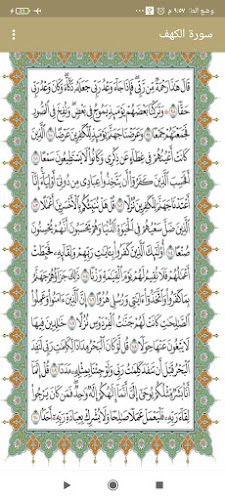 وضع الطا... ٩:٥٧ م
سورة الكهف
قَالَ هَٰذَا رَحْمَةٌ مِّن رَّبِّي ۖ فَإِذَا جَاءَ وَعْدُ رَبِّي جَعَلَهُ دَكَّاءَ ۖ وَكَانَ وَعْدُ رَبِّي
حَقًّا ٩٨ ۞ وَتَرَكْنَا بَعْضَهُمْ يَوْمَئِذٍ يَمُوجُ فِي بَعْضٍ ۖ وَنُفِخَ فِي الصُّورِ
فَجَمَعْنَاهُمْ جَمْعًا ٩٩ وَعَرَضْنَا جَهَنَّمَ يَوْمَئِذٍ لِّلْكَافِرِينَ عَرْضًا ١٠٠ الَّذِينَ
كَانَتْ أَعْيُنُهُمْ فِي غِطَاءٍ عَن ذِكْرِي وَكَانُوا لَا يَسْتَطِيعُونَ سَمْعًا ١٠١
أَفَحَسِبَ الَّذِينَ كَفَرُوا أَن يَتَّخِذُوا عِبَادِي مِن دُونِي أَوْلِيَاءَ ۚ إِنَّا
أَعْتَدْنَا جَهَنَّمَ لِلْكَافِرِينَ نُزُلًا ١٠٢ قُلْ هَلْ نُنَبِّئُكُم بِالْأَخْسَرِينَ أَعْمَالًا ١٠٣
الَّذِينَ ضَلَّ سَعْيُهُمْ فِي الْحَيَاةِ الدُّنْيَا وَهُمْ يَحْسَبُونَ أَنَّهُمْ يُحْسِنُونَ
صُنْعًا ١٠٤ أُولَٰئِكَ الَّذِينَ كَفَرُوا بِآيَاتِ رَبِّهِمْ وَلِقَائِهِ فَحَبِطَتْ
أَعْمَالُهُمْ فَلَا نُقِيمُ لَهُمْ يَوْمَ الْقِيَامَةِ وَزْنًا ١٠٥ ذَٰلِكَ جَزَاؤُهُمْ جَهَنَّمُ
بِمَا كَفَرُوا وَاتَّخَذُوا آيَاتِي وَرُسُلِي هُزُوًا ١٠٦ إِنَّ الَّذِينَ آمَنُوا وَعَمِلُوا
الصَّالِحَاتِ كَانَتْ لَهُمْ جَنَّاتُ الْفِرْدَوْسِ نُزُلًا ١٠٧ خَالِدِينَ فِيهَا
لَا يَبْغُونَ عَنْهَا حِوَلًا ١٠٨ قُل لَّوْ كَانَ الْبَحْرُ مِدَادًا لِّكَلِمَاتِ رَبِّي لَنَفِدَ
الْبَحْرُ قَبْلَ أَن تَنفَدَ كَلِمَاتُ رَبِّي وَلَوْ جِئْنَا بِمِثْلِهِ مَدَدًا ١٠٩ قُلْ إِنَّمَا
أَنَا بَشَرٌ مِّثْلُكُمْ يُوحَىٰ إِلَيَّ أَنَّمَا إِلَٰهُكُمْ إِلَٰهٌ وَاحِدٌ ۖ فَمَن كَانَ يَرْجُو
لِقَاءَ رَبِّهِ فَلْيَعْمَلْ عَمَلًا صَالِحًا وَلَا يُشْرِكْ بِعِبَادَةِ رَبِّهِ أَحَدًا ١١٠